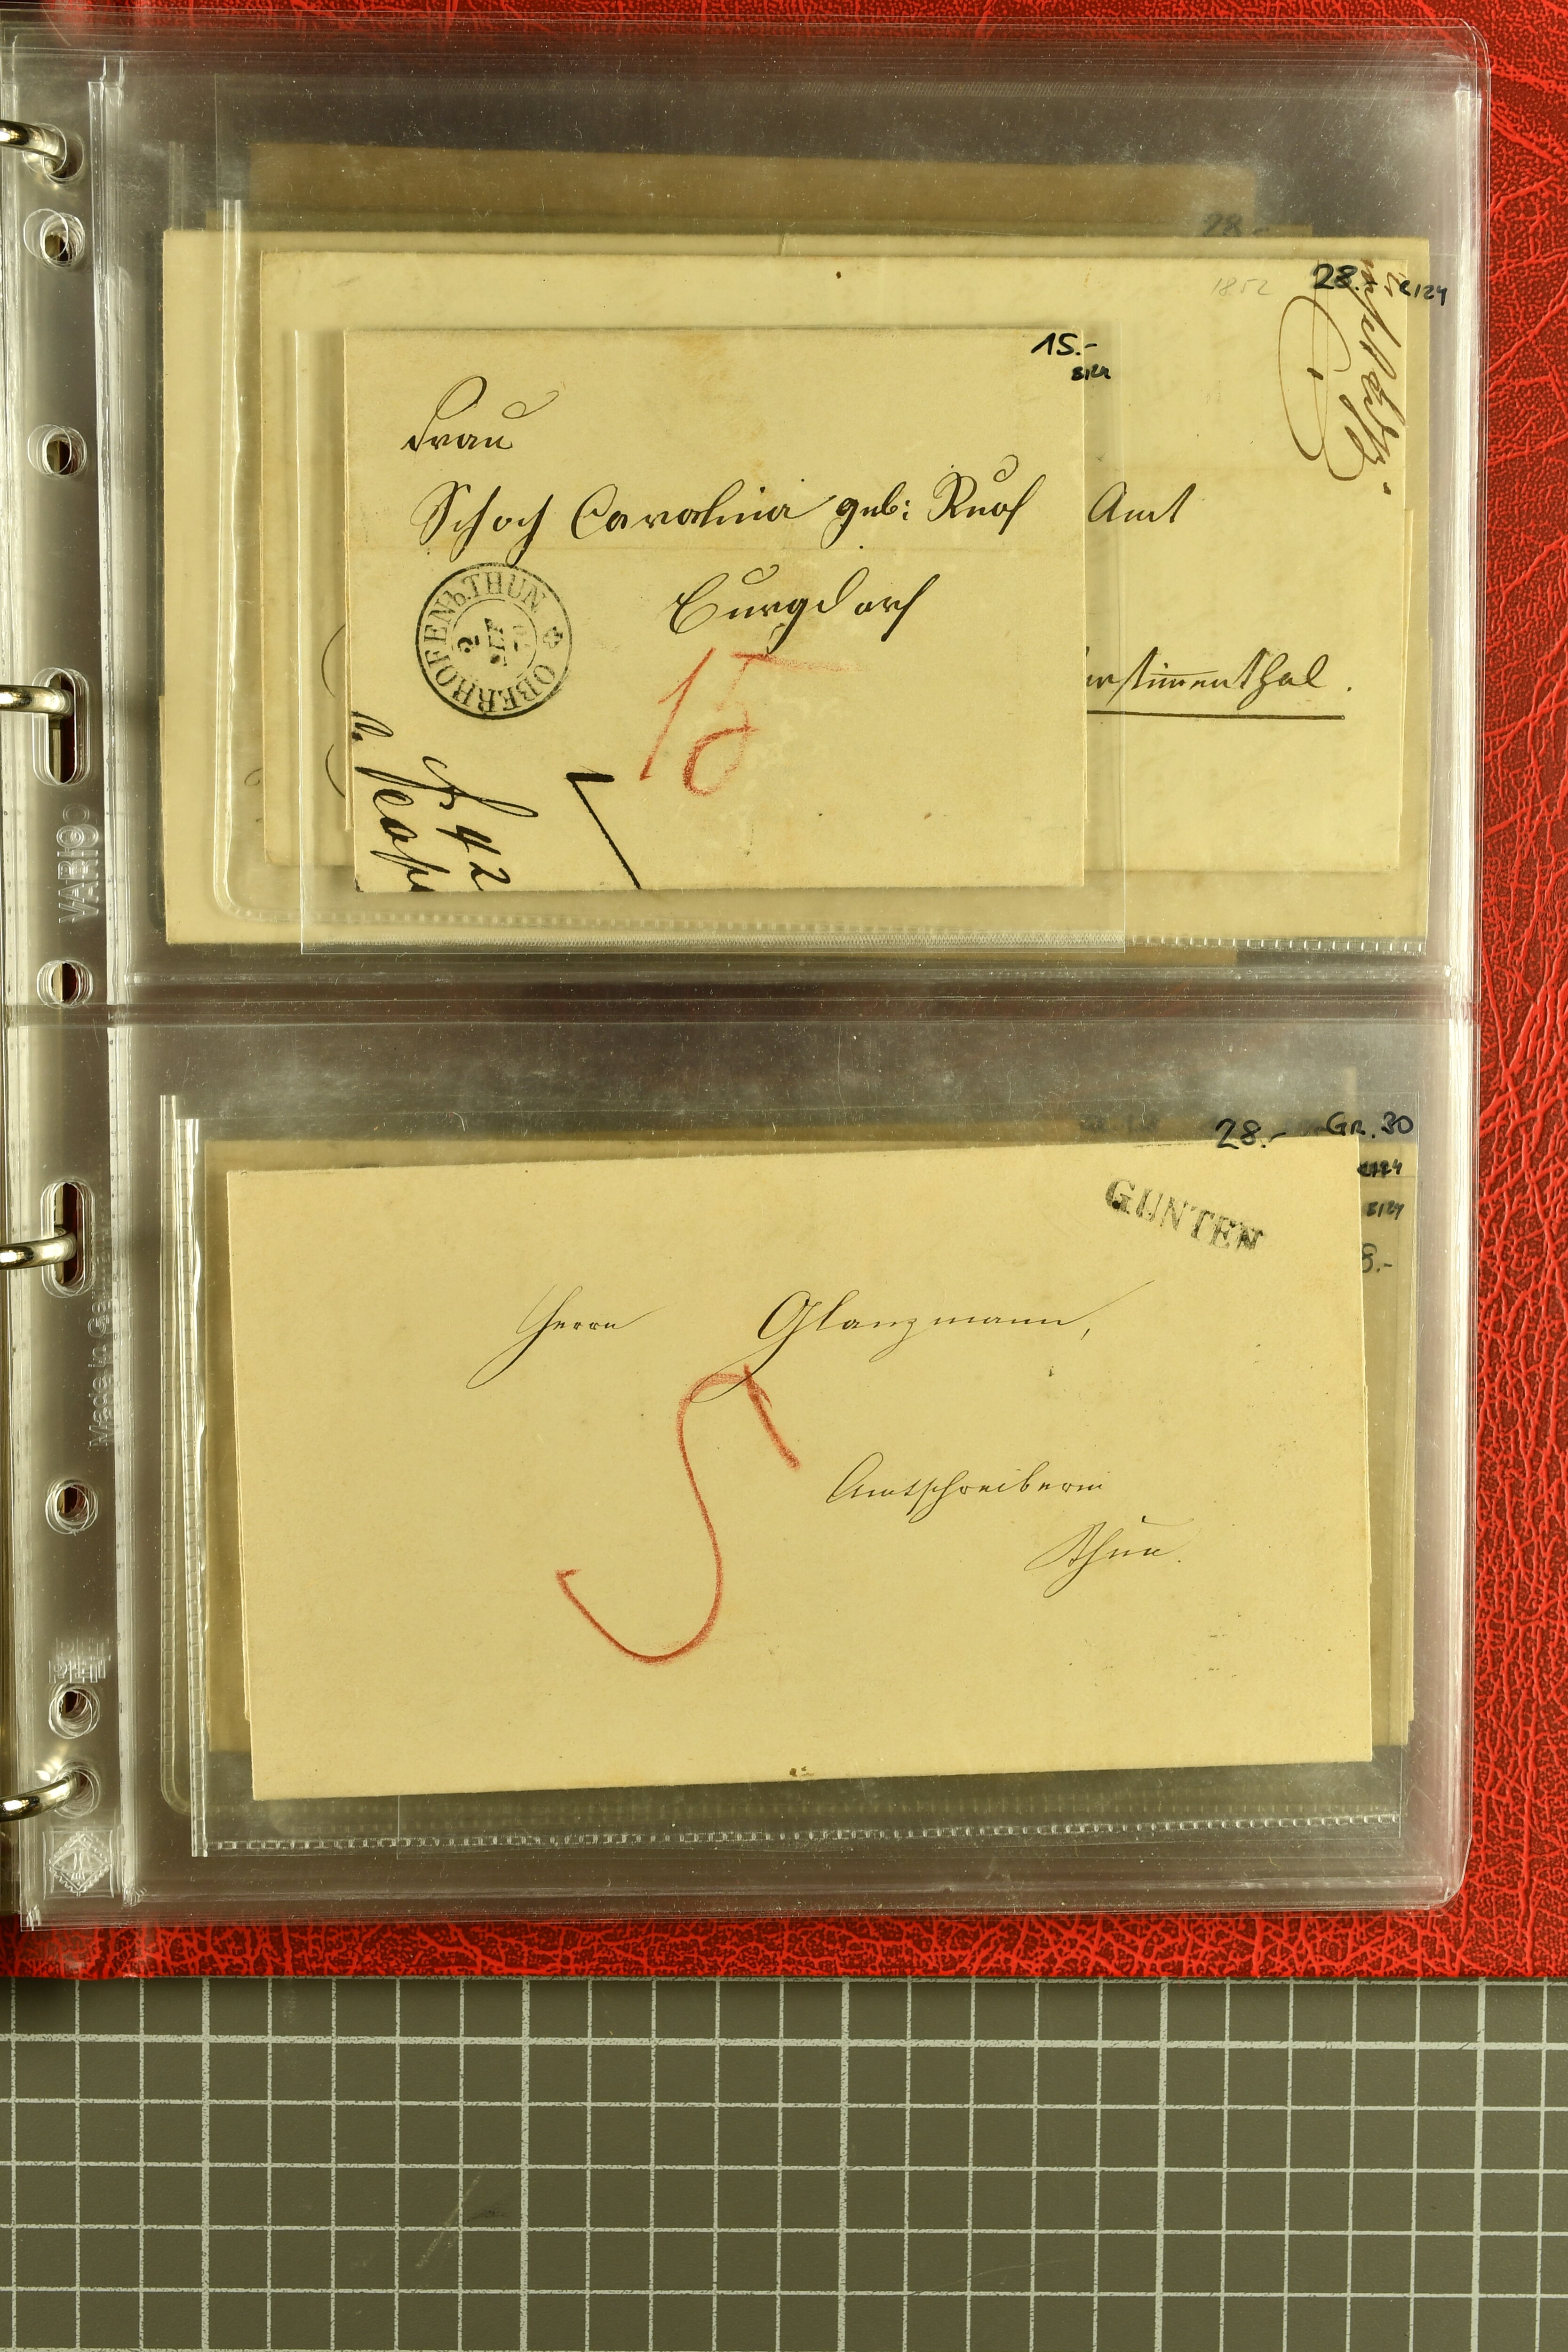 28.-
1852
28.-
E124
15.-
E124
Frau
Schoch Carolina geb: Ruof
Amt
Burgdorf
OBERHOFEN b. THUN
2
15
42
VARIO
28.-
Gr. 30
E124
E124
8.-
GUNTEN
Herrn Glanzmann,
5
Amtschreiber in
Thun.
Made in Germany